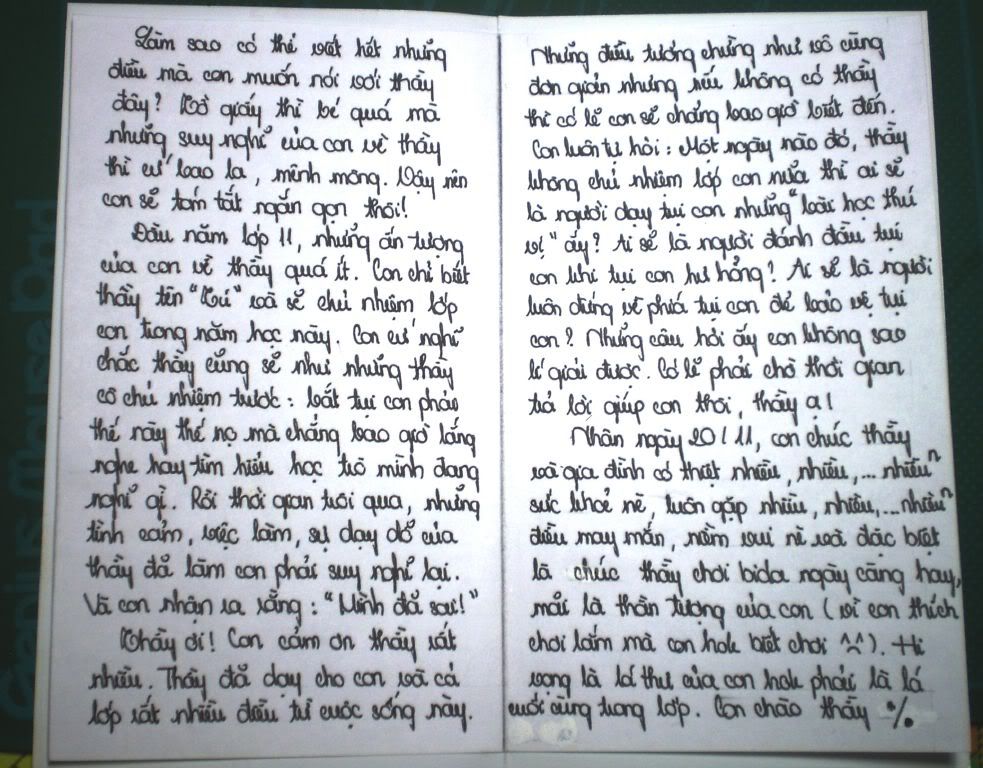 Làm sao có thể viết hết những
điều mà con muốn nói với thầy
đây? Tờ giấy thì bé quá mà
những suy nghĩ của con về thầy
thì cứ bao la, mênh mông. Vậy nên
con sẽ tóm tắt ngắn gọn thôi!
Đầu năm lớp 11, những ấn tượng
của con về thầy quá ít. Con chỉ biết
thầy tên "Tú" và sẽ chủ nhiệm lớp
con trong năm học này. Con cứ nghĩ
chắc thầy cũng sẽ như những thầy
cô chủ nhiệm trước: bắt tụi con phải
thế này thế nọ mà chẳng bao giờ lắng
nghe hay tìm hiểu học trò mình đang
nghĩ gì. Rồi thời gian trôi qua, những
tình cảm, việc làm, sự dạy dỗ của
thầy đã làm con phải suy nghĩ lại.
Và con nhận ra rằng: "Mình đã sai!"
Thầy ơi! Con cảm ơn thầy rất
nhiều. Thầy đã dạy cho con và cả
lớp rất nhiều điều từ cuộc sống này.
Những điều tưởng chừng như vô cùng
đơn giản nhưng nếu không có thầy
thì có lẽ con sẽ chẳng bao giờ biết đến.
Con luôn tự hỏi: Một ngày nào đó, thầy
không chủ nhiệm lớp con nữa thì ai sẽ
là người dạy tụi con những "bài học thú
vị" ấy? Ai sẽ là người đánh đầu tụi
con khi tụi con hư hỏng? Ai sẽ là người
luôn đứng về phía tụi con để bảo vệ tụi
con? Những câu hỏi ấy con không sao
lí giải được. Có lẽ phải chờ thời gian
trả lời giúp con thôi, thầy ạ!
Nhân ngày 20/11, con chúc thầy
và gia đình có thật nhiều, nhiều,... nhiềuⁿ
sức khoẻ nè, luôn gặp nhiều, nhiều,... nhiềuⁿ
điều may mắn, niềm vui nì và đặc biệt
là chúc thầy chơi bida ngày càng hay,
mãi là thần tượng của con (vì con thích
chơi lắm mà con hok biết chơi ^^). Hi
vọng là lá thư của con hok phải là lá
cuối cùng trong lớp. Con chào thầy %.
Genius Mouse Pad